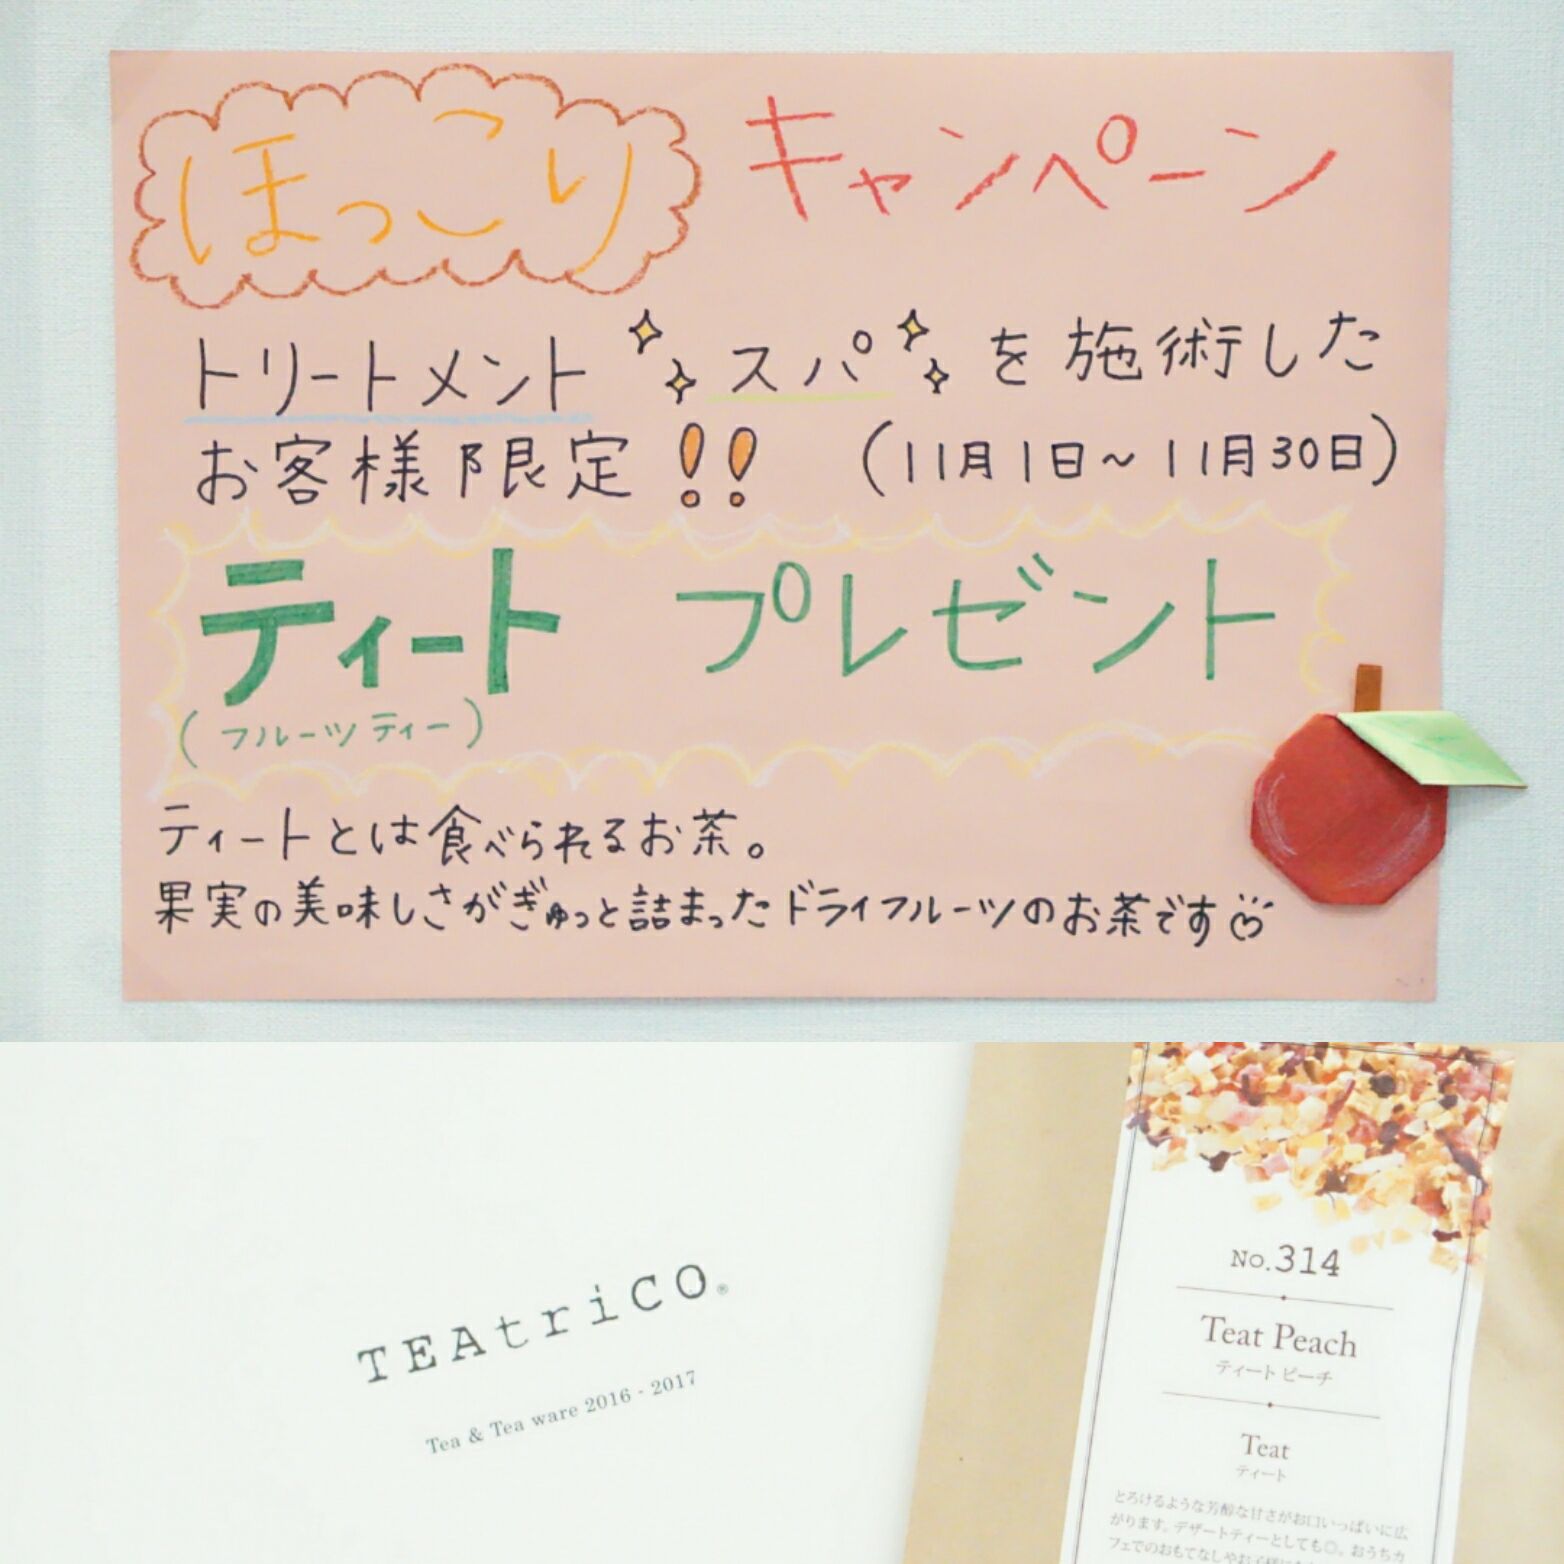 ほっこり キャンペーン
トリートメント スパ を施術した
お客様限定!! (11月1日〜11月30日)
ティート プレゼント
(フルーツティー)
ティートとは食べられるお茶。
果実の美味しさがぎゅっと詰まったドライフルーツのお茶です
TEAtriCO®
Tea & Tea ware 2016 - 2017
No.314
Teat Peach
ティート ピーチ
Teat
ティート
とろけるような芳醇な甘さがお口いっぱいに広
がります。デザートティーとしても◎。おうちカ
フェでのおもてなしやお子様に